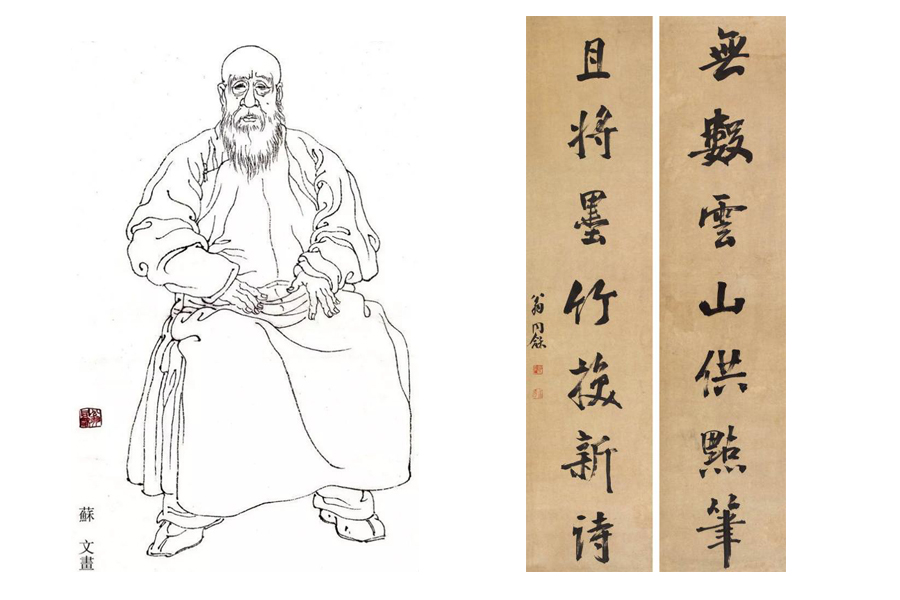 蘇文畫
無數雲山供點筆
且將墨竹換新詩
翁同龢